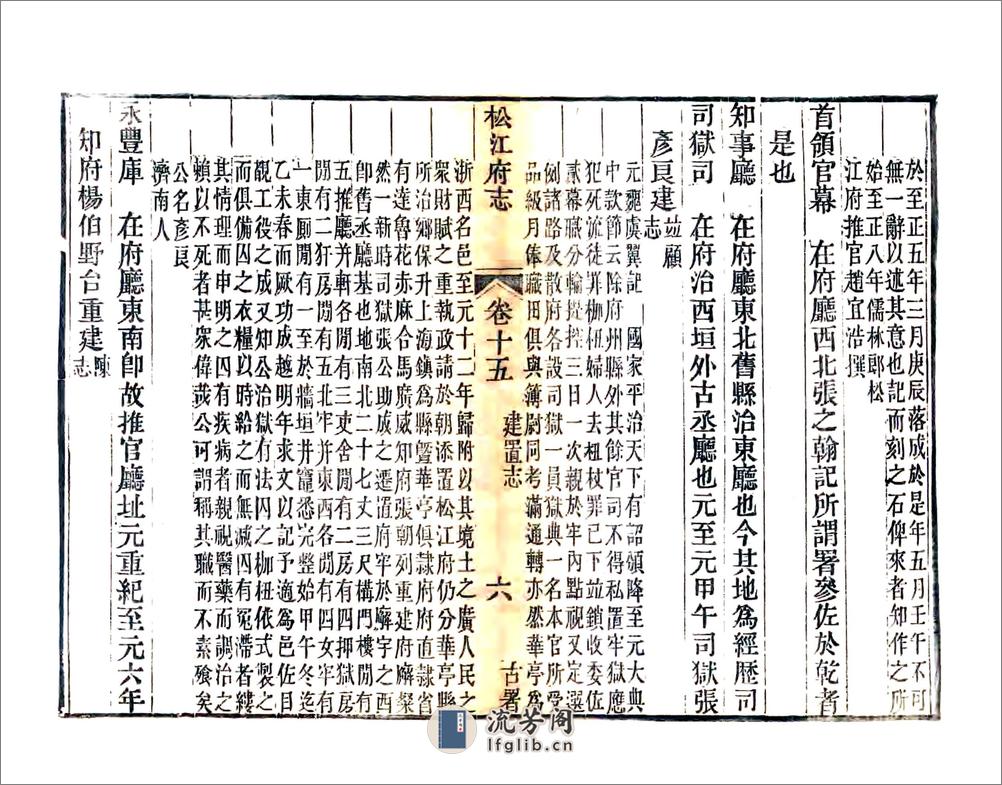 於至正五年三月庚辰落成於是年五月壬午不可
無一辭以述其意也記而刻之石俾來者知作之所
始至正八年儒林郎松
江府推官趙宜浩撰
首領官幕　在府廳西北張之翰記所謂署參佐於乾者
是也
知事廳　在府廳東北舊縣治東廳也今其地爲經歷司
司獄司　在府治西垣外古丞廳也元至元甲午司獄張
彥良建竝顧志
元龔虞翼記　國家平治天下有詔頒降至元大典
中款節云除府州縣外其餘官司不得私置牢獄應
犯死流徒罪枷杻婦人去杻杖罪已下竝鎖收委佐
貳幕職分輪提控三日一次親於牢內點視又定選
例諸路及散府各設司獄一員獄典一名本官所受
品級月俸職田俱與簿尉同考滿通轉亦然華亭爲
松江府志　卷十五　建置志　六　古署
浙西名邑至元十二年歸附以其境土之廣人民之
衆財賦之重執政請於朝添置松江府仍分華亭縣
所治鄉保升上海鎮爲縣曁華亭俱隷府府直隷省
有達魯花赤麻合馬廣威知府張朝列重建府廨粲
然一新時司獄張公助成之遷置府牢於廨宇之西
卽舊丞廳基也其地南北二十七丈三尺構門樓閒有
五推廳幷軒各閒有三吏舍閒有二房有四押獄房
閒有二犴房閒有五北牢幷東西各閒有四女牢有
一東厠閒有一至於牆垣井竈悉完整始甲午冬迄
乙未春而厥功成越明年求文以記予適爲邑佐目
覩工役之成又知公治獄有法囚之枷杻依式製之
而俱備囚之衣糧以時給之而無減囚有冤滯者縷
其情理而申明之囚有疾病者親視醫藥而調治之
賴以不死者甚衆偉哉公可謂稱其職而不素飱矣
公名彥良
濟南人
永豐庫　在府廳東南卽故推官廳址元重紀至元六年
知府楊伯野台重建陳志
流芳阁
lfglib.cn